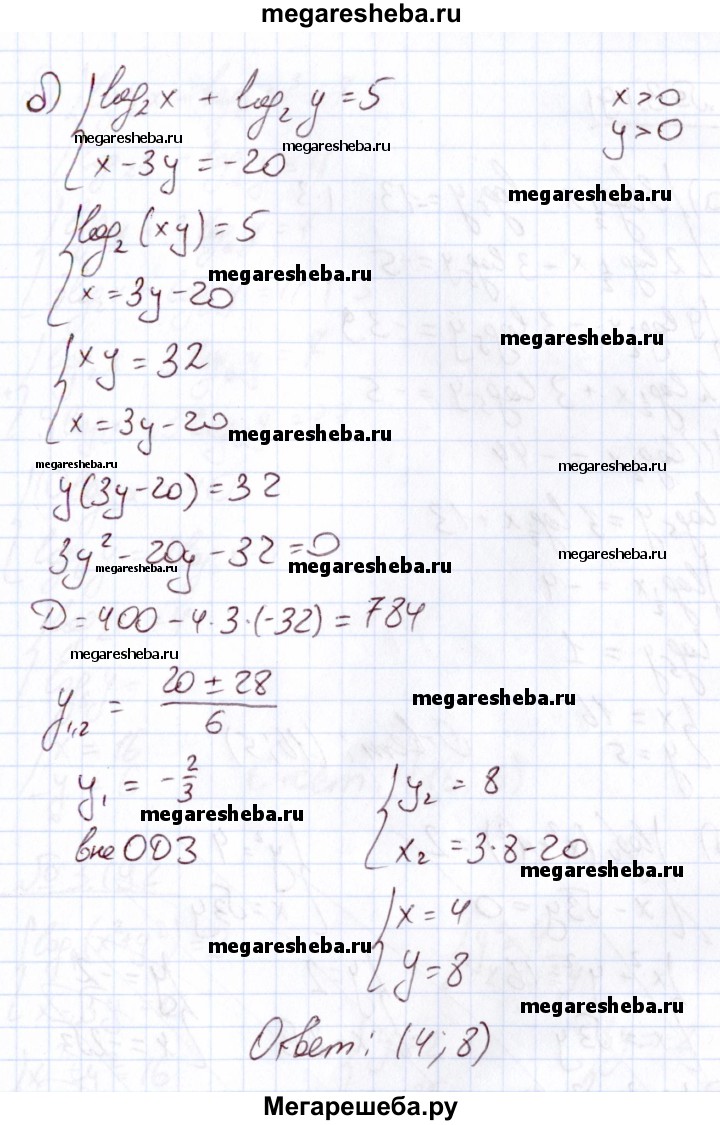 megaresheba.ru
б) { log₂ x + log₂ y = 5 x > 0
megaresheba.ru megaresheba.ru y > 0
x - 3y = -20
megaresheba.ru
{ log₂ (xy) = 5
megaresheba.ru
x = 3y - 20
megaresheba.ru
{ xy = 32
x = 3y - 20
megaresheba.ru
megaresheba.ru megaresheba.ru
y(3y - 20) = 32
3y² - 20y - 32 = 0
megaresheba.ru megaresheba.ru megaresheba.ru
D = 400 - 4·3·(-32) = 784
megaresheba.ru
y₁,₂ = (20 ± 28)/6
megaresheba.ru
y₁ = -2/3 { y₂ = 8
megaresheba.ru
вне ОДЗ x₂ = 3·8 - 20
megaresheba.ru
{ x = 4
megaresheba.ru
y = 8
megaresheba.ru
Ответ: (4; 8)
Мегарешеба.ру